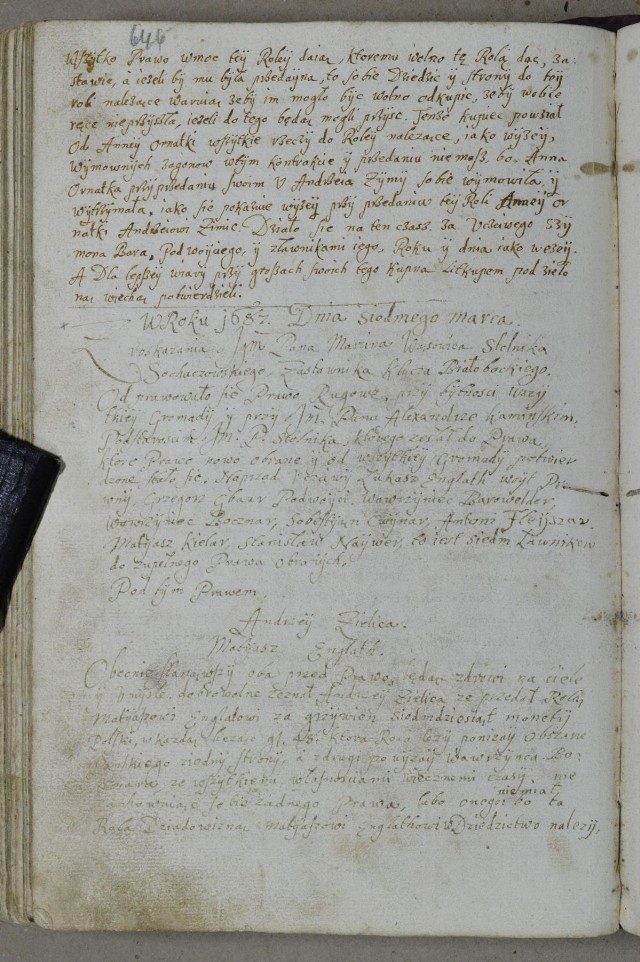 646
Wszytko Prawo wmoc tey Roley daiąc, ktoremu wolno tę Rolą dać, za:
stawic, á ieżeli by mu była przedayna, to sobie Dziedzic y strony do tey
roli należące waruią, zeby im mogło byc wolno odkupic, zeby wobce
ręce nieprzyszła, ieżeli do tego będą mogli przysc. Tenże kupiec powziął
Od Anney Ornatki wszytkie rzeczy do Roley należące, iako wyżey,
Wymownych zagonow wtym kontrakcie y przedaniu niemasz, bo Anna
Ornatka przy przedaniu swoim V Andrzeia Zymy sobie wymowiła, y
wytrzymała, iako sie pokazuie wyzey przy przedaniu tey Roli Anney Or
natki Andrzeiowi Zimie. Działo sie na ten czass. Za Vczciwego Szy
mona Bara, Podwoyciego, y zławnikami iego, Roku y dnia iako wyżey.
A Dla lepszey wiary przy groszach swoich tego kupna Litkupem pod zielo
ną wiechą potwierdzieli.
WRoku 1687. Dnia Siodmego marca.
Z rozkazania Jgm Pana Marcina Stolnika
Sochaczowskiego, Zastawnika klucza Białobockiego.
Od prawowało sie Prawo Rugowe, przy bytnosci wszy
tkiey Gromady y przy Jm. Panu Alexandrze Kaminskim,
Jm. P. Stolnika, ktorego zesłał do Prawa,
ktore Prawo nowo obrane y od wszytkiey Gromady potwier
dzone stało sie. Naprzod Łukasz Englath woyt
wny, Grzegorz Gbaur Podwoyci, Wawrzyniec Barowolder,
Wawrzyniec Bocznar, Sobestyian Cwynar, Antoni Fleyszar.
Matyasz kielar, Stanisław Naywer, to iest siedm Ławnikow
do zupełnego Prawa obranych.
Pod tym Prawem.
Andrzey Zielica.
Matyasz Englath.
Obecnie stanąwszy oba przed Prawo, będąc zdrowi na ciele
y Vmysle, dobrowolne zeznał Andrzey Zielica ze przedał Rolą
Matyaszowi Englatowi za grzywien siedmdziesiąt monety
Polski, w każdą licząc gr. 48. ktora Rola leży poniżey Obszaru
z iedny strony, á z drugi powyzey Wawrzynca Bo:
cznara ze wszytkiemi własnosciami wiecznemi czasy, nic
niemiał
sobie zadnego Prawa, labo onego bo ta
Rola Dziadowizna Matyaszowi Englathowi wDziedzictwo należy,